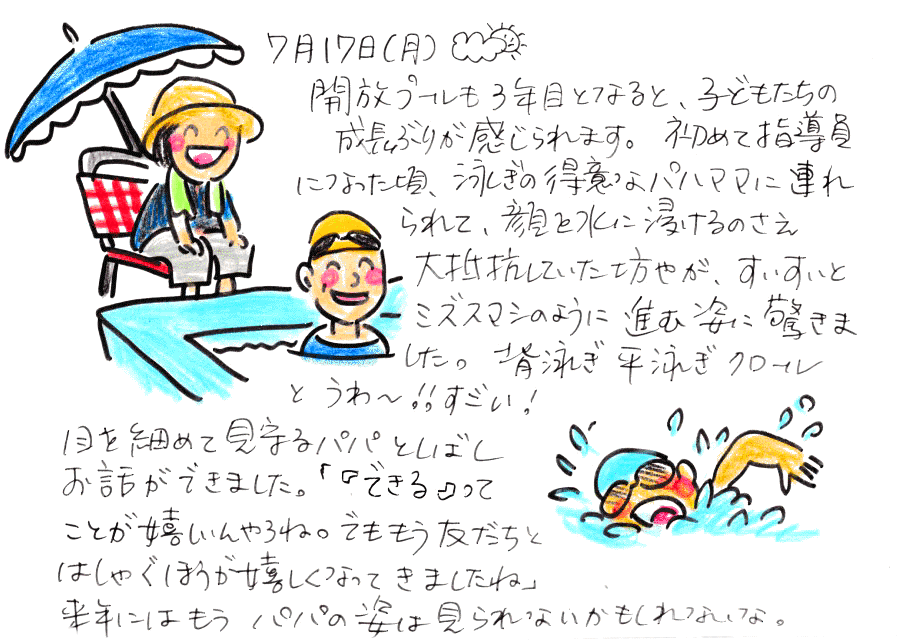 7月17日(月)
開放プールも3年目となると、子どもたちの
成長ぶりが感じられます。初めて指導員
になった頃、泳ぎの得意なパパママに連れ
られて、顔を水に浸けるのさえ
大抵抗していた坊やが、すいすいと
ミズスマシのように進む姿に驚きま
した。背泳ぎ平泳ぎクロール
とうわ〜!!すごい!
目を細めて見守るパパとしばし
お話ができました。「『できる』って
ことが嬉しいんやろね。でももう友だちと
はしゃぐほうが嬉しくなってきましたね」
来年にはもうパパの姿は見られないかもしれないな。